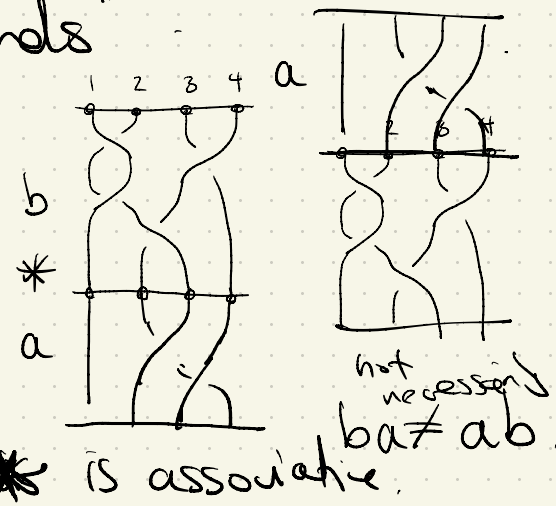 1 2 3 4
b
*
a
a
2 3 4
not
necessarily
ba ≠ ab.
* is associative.